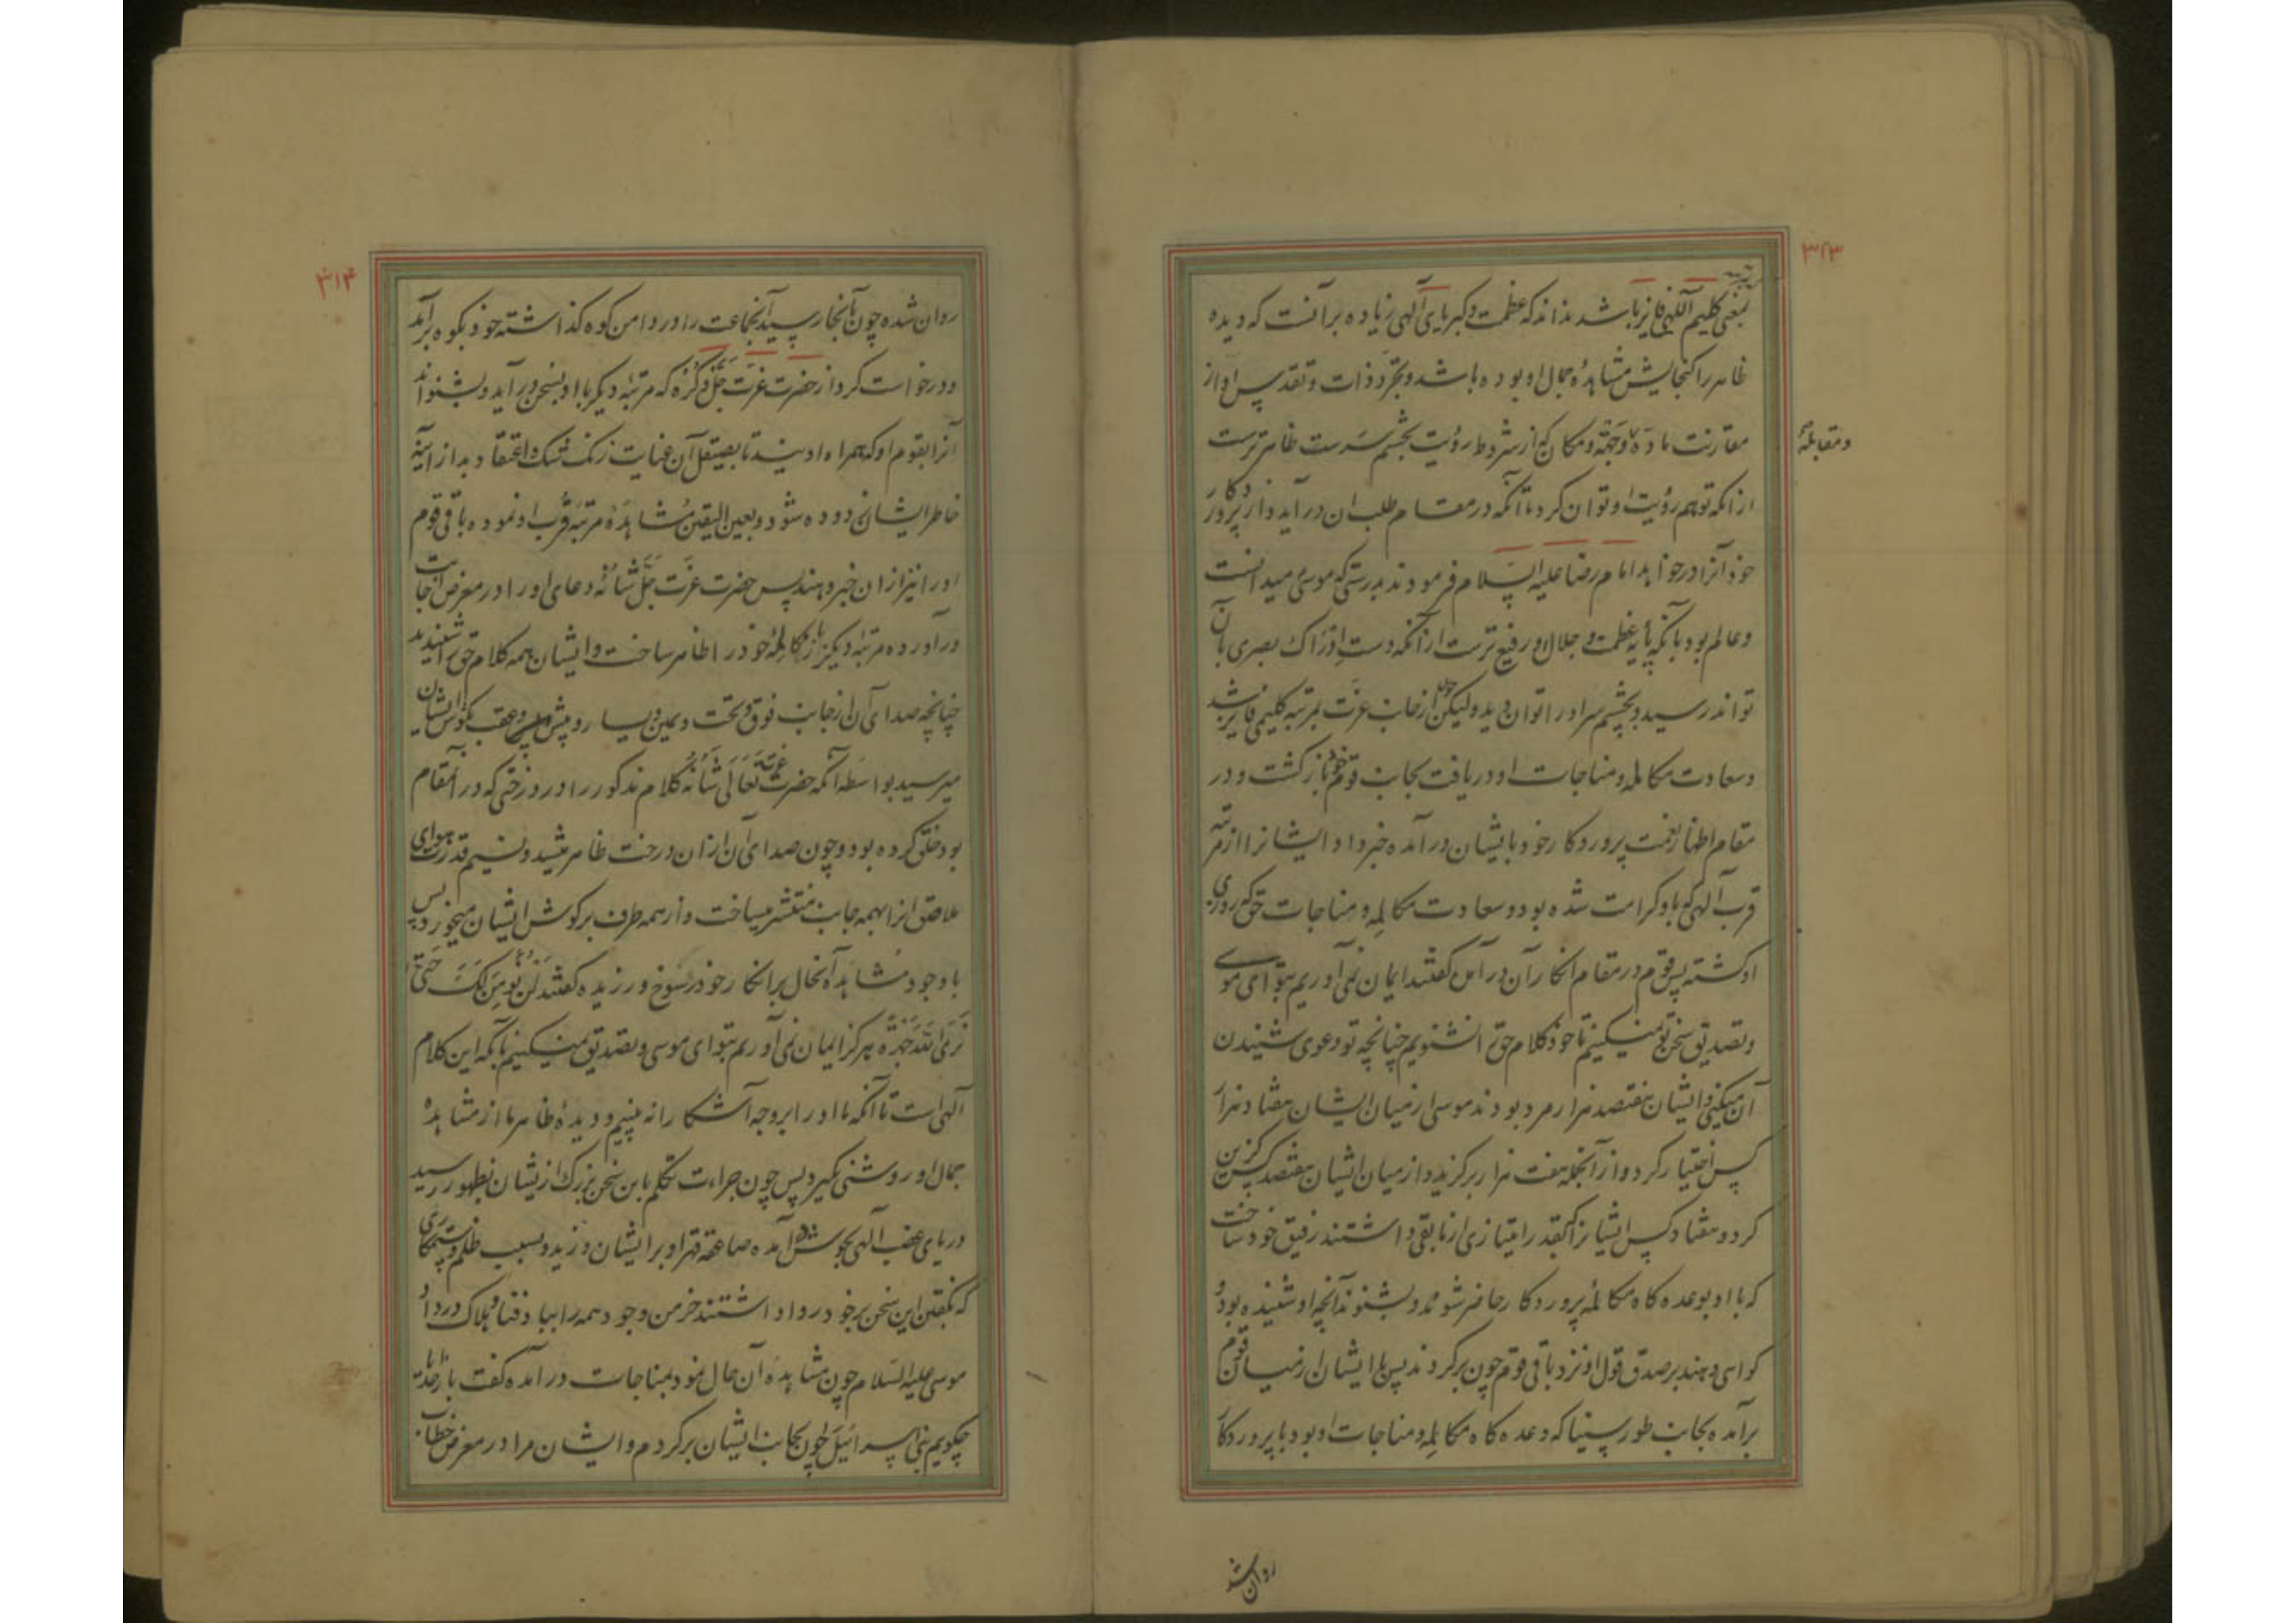 ۳۱۳
بمعنی کلیم اللهی فایز باشد نداند که عظمت و کبریای الهی زیاده بر آنست که دیده
ظاهر را گنجایش مشاهدهٔ جمال او بوده باشد و تجرّد ذات و تقدیس او از
مقارنت ماده و جهة و مکان که از شروط رؤیت بچشم سرست ظاهرترست
و مقابلهٔ
از آنکه توهم رؤیت او توان کرد تا آنکه در مقام طلب ان درآید و از پروردکار
خود آنرا درخواهد امام رضا علیه السلام فرمودند بدرستی که موسی میدانست
و عالم بود بآنکه پایهٔ عظمت و جلال او رفیع ترست از آنکه دست ادراک بصری بآن
تواند رسید و بچشم سر او را توان دید و لیکن چون از جانب عزت بمرتبه کلیمی فایز شد
و سعادت مکالمه و مناجات او دریافت بجانب قوم خود باز کشت و در
مقام اظهار نعمت پروردکار خود بایشان درآمده خبر داد ایشانرا از مرتبه
قرب الهی که باو کرامت شده بود و سعادت مکالمه و مناجات حق که روزی
او کشته پس قوم در مقام انکار آن درآمده کفتند ایمان نمی آوریم بتو ای موسی
و تصدیق سخن تو نمیکنیم تا خود کلام حق را نشنویم چنانچه تو دعوی شنیدن
آن میکنی و ایشان هفتصد هزار مرد بودند موسی از میان ایشان هفتاد هزار
کس اختیار کرد و از آنجمله هفت هزار برکزید و از میان ایشان هفتصد کس کزین
کرد و هفتاد کس ایشانرا که قدر امتیازی از مابقی داشتند رفیق خود ساخت
که با او بوعده کاه مکالمهٔ پروردکار حاضر شوند و بشنوند آنچه او شنیده بود و
کواهی دهند بر صدق قول او نزد باقی قوم چون برکردند پس با ایشان از میان قوم
برآمده بجانب طور سینا که وعده کاه مکالمه و مناجات او بود با پروردکار
روان شد
۳۱۴
روان شده چون بآنجا رسید آنجماعت را در دامن کوه کذاشته خود بکوه برآمد
و درخواست کرد از حضرت عزّت جلّ ذکره که مرتبهٔ دیکر با او بسخن درآید و بشنواند
آنرا بقوم او که همراه اویند تا بصیقل آن عنایت زنک شک و اعتقاد بد از آینهٔ
خاطر ایشان زدوده شود و بعین الیقین مشاهدهٔ مرتبهٔ قرب او نموده باقی قوم
او را نیز از ان خبر دهند پس حضرت عزّت جلّ شانه دعای او را در معرض اجابت
درآورده مرتبهٔ دیکر باز مکالمهٔ خود را ظاهر ساخت و ایشان همه کلام حق را شنیدند
چنانچه صدای آن از جانب فوق و تحت و یمین و یسار و پیش و پس و عقب بکوش ایشان
میرسید بواسطه آنکه حضرت عزت تعالی شانه کلام مذکور را در درختی که در آنمقام
بود خلق کرده بود و چون صدای آن از ان درخت ظاهر میشد و نسیم قدرت هوای
ملاصق انرا بهمه جانب منتشر میساخت و از همه طرف بر کوش ایشان میخورد پس
با وجود مشاهده آنحال بر انکار خود رسوخ ورزیده کفتند لَن نُؤمِنَ لَکَ حَتّی
نَرَی اللهَ جَهرَةً هرکز ایمان نمی آوریم بتو ای موسی و تصدیق نمیکنیم بآنکه این کلام
الهی است تا آنکه ما او را بر وجه آشکارا نه بینیم و دیدهٔ ظاهر ما از مشاهدهٔ
جمال او روشنی نکیرد پس چون جراءت تکلم باین سخن بزرک از ایشان بظهور رسید
دریای غضب الهی بجوش آمده صاعقه قهر او بر ایشان وزید و بسبب ظلم و ستمکاری
که بکفتن این سخن بر خود روا داشتند خرمن وجود همه را بباد فنا و هلاک درداد
موسی علیه السلام چون مشاهدهٔ آن حال نمود بمناجات درآمده کفت بار خدایا
چکویم بنی اسرائیل را چون بجانب ایشان برکردم و ایشان مرا در معرض خطاب